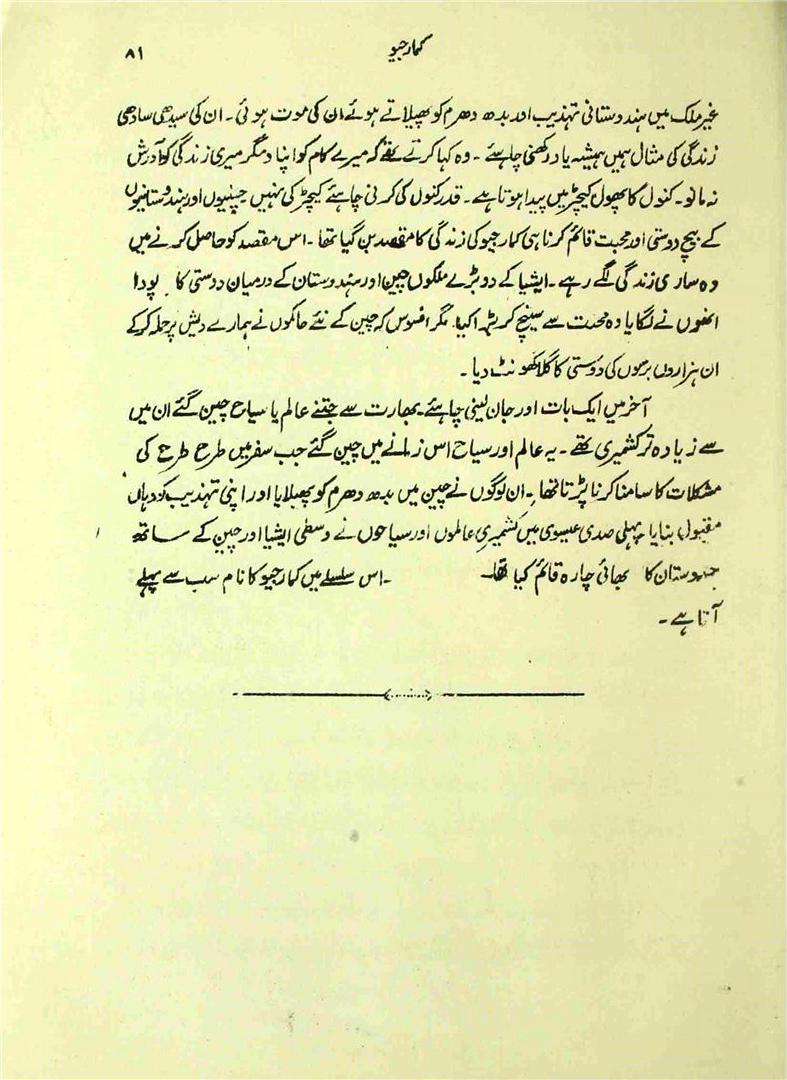 کمارجیو ۸۱
غیر ملک میں ہندوستانی تہذیب اور بدھ دھرم کو پھیلاتے ہوئے ان کی موت ہوئی۔ ان کی سیدھی سادھی
زندگی کی مثال ہمیں ہمیشہ یاد رکھنی چاہئے۔ وہ کہا کرتے تھے کہ میرے کام کو اپناؤ مگر میری زندگی کو آدرش
نہ مانو۔ کنول کا پھول کیچڑ میں پیدا ہوتا ہے۔ قدر کنول کی کرنی چاہئے کیچڑ کی نہیں چینیوں اور ہندوستانیوں
کے بیچ دوستی اور محبت قائم کرنا ہی کمارجیو کی زندگی کا مقصد بن گیا تھا۔ اس مقصد کو حاصل کرنے میں
وہ ساری زندگی لگے رہے۔ ایشیا کے دو بڑے ملکوں چین اور ہندوستان کے درمیان دوستی کا پودا
انھوں نے لگایا وہ محبت سے سینچ کر بڑا کیا۔ مگر افسوس کہ چین کے نئے حاکموں نے ہمارے دیش پر حملہ کر کے
ان ہزاروں برسوں کی دوستی کا گلا گھونٹ دیا۔
آخر میں ایک بات اور جان لینی چاہئے۔ بھارت سے جتنے عالم یا سیاح چین گئے ان میں
سے زیادہ تر کشمیری تھے۔ یہ عالم اور سیاح اس زمانے میں چین گئے جب سفر میں طرح طرح کی
مشکلات کا سامنا کرنا پڑتا تھا۔ ان لوگوں نے چین میں بدھ دھرم کو پھیلایا اور اپنی تہذیب کو وہاں
مقبول بنایا پہلی صدی عیسوی میں کشمیری عالموں اور سیاحوں نے وسطی ایشیا اور چین کے ساتھ
ہندوستان کا بھائی چارہ قائم کیا تھا۔ ۔ اس سلسلے میں کمارجیو کا نام سب سے پہلے
آتا ہے۔